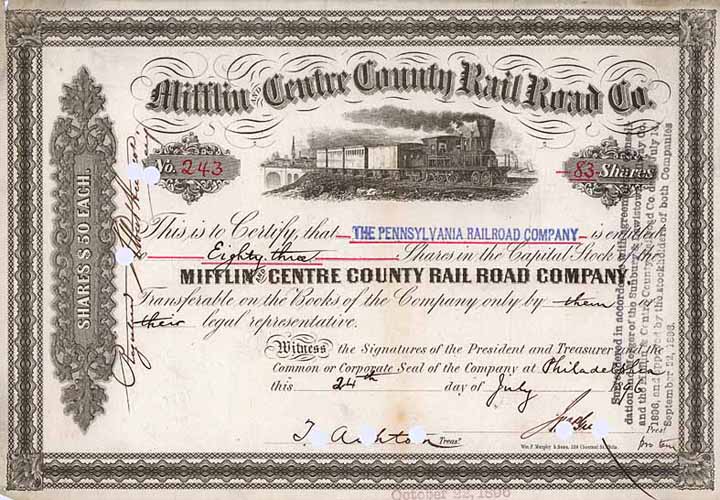 Mifflin AND Centre County Rail Road Co.
No. 243
83 Shares
SHARES $50 EACH.
This is to Certify, that THE PENNSYLVANIA RAILROAD COMPANY is
to Eighty three Shares in the Capital Stock of the
MIFFLIN AND CENTRE COUNTY RAIL ROAD COMPANY
Transferable on the Books of the Company only by them
their legal representative.
Witness the Signatures of the President and Treasurer and the
Common or Corporate Seal of the Company at Philadelphia
this 24th day of July
T. Ashton Treas.r
Pres.t
pro tem
Wm. F. Murphy & Sons, 509 Chestnut St. Phila.
Surrendered in accordance with agreement
dation and merger of the Sunbury & Lewistown
and the Mifflin & Centre County Rail Road Co. dated July 14,
1896, and by the stockholders of both Companies
September 22, 1896.
October 22, 1896